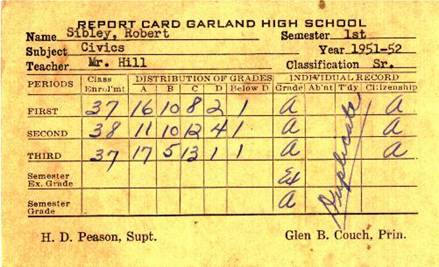 REPORT CARD GARLAND HIGH SCHOOL
Name Sibley, Robert Semester 1st
Subject Civics Year 1951-52
Teacher Mr. Hill Classification Sr.
PERIODS Class Enrol'mt DISTRIBUTION OF GRADES A B C D Below D INDIVIDUAL RECORD Grade Ab'nt T'dy Citizenship
FIRST 37 16 10 8 2 1 A A
SECOND 38 11 10 12 4 1 A A
THIRD 37 17 5 13 1 1 A A
Semester Ex. Grade Ex
Semester Grade A
Duplicate
H. D. Peason, Supt. Glen B. Couch, Prin.